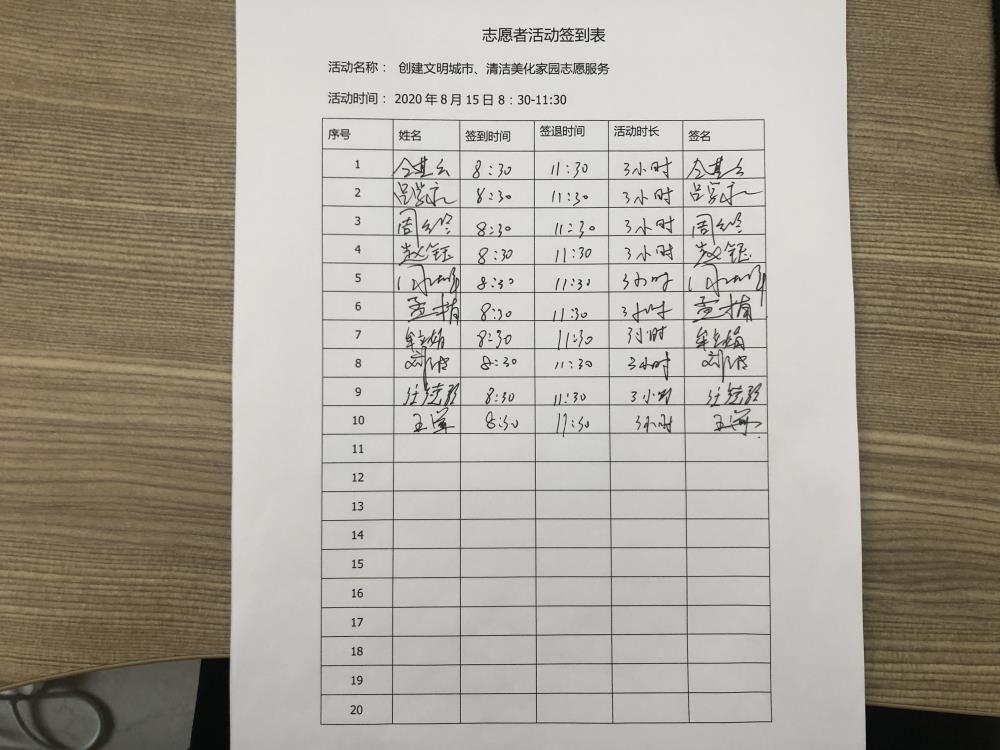 志愿者活动签到表
活动名称： 创建文明城市、清洁美化家园志愿服务
活动时间： 2020年8月15日8：30-11:30
序号 姓名 签到时间 签退时间 活动时长 签名
1 8:30 11:30 3小时
2 8:30 11:30 3小时
3 8:30 11:30 3小时
4 赵钰 8:30 11:30 3小时 赵钰
5 8:30 11:30 3小时
6 孟楠 8:30 11:30 3小时 孟楠
7 8:30 11:30 3小时
8 刘波 8:30 11:30 3小时 刘波
9 8:30 11:30 3小时
10 王军 8:30 11:30 3小时 王军
11
12
13
14
15
16
17
18
19
20